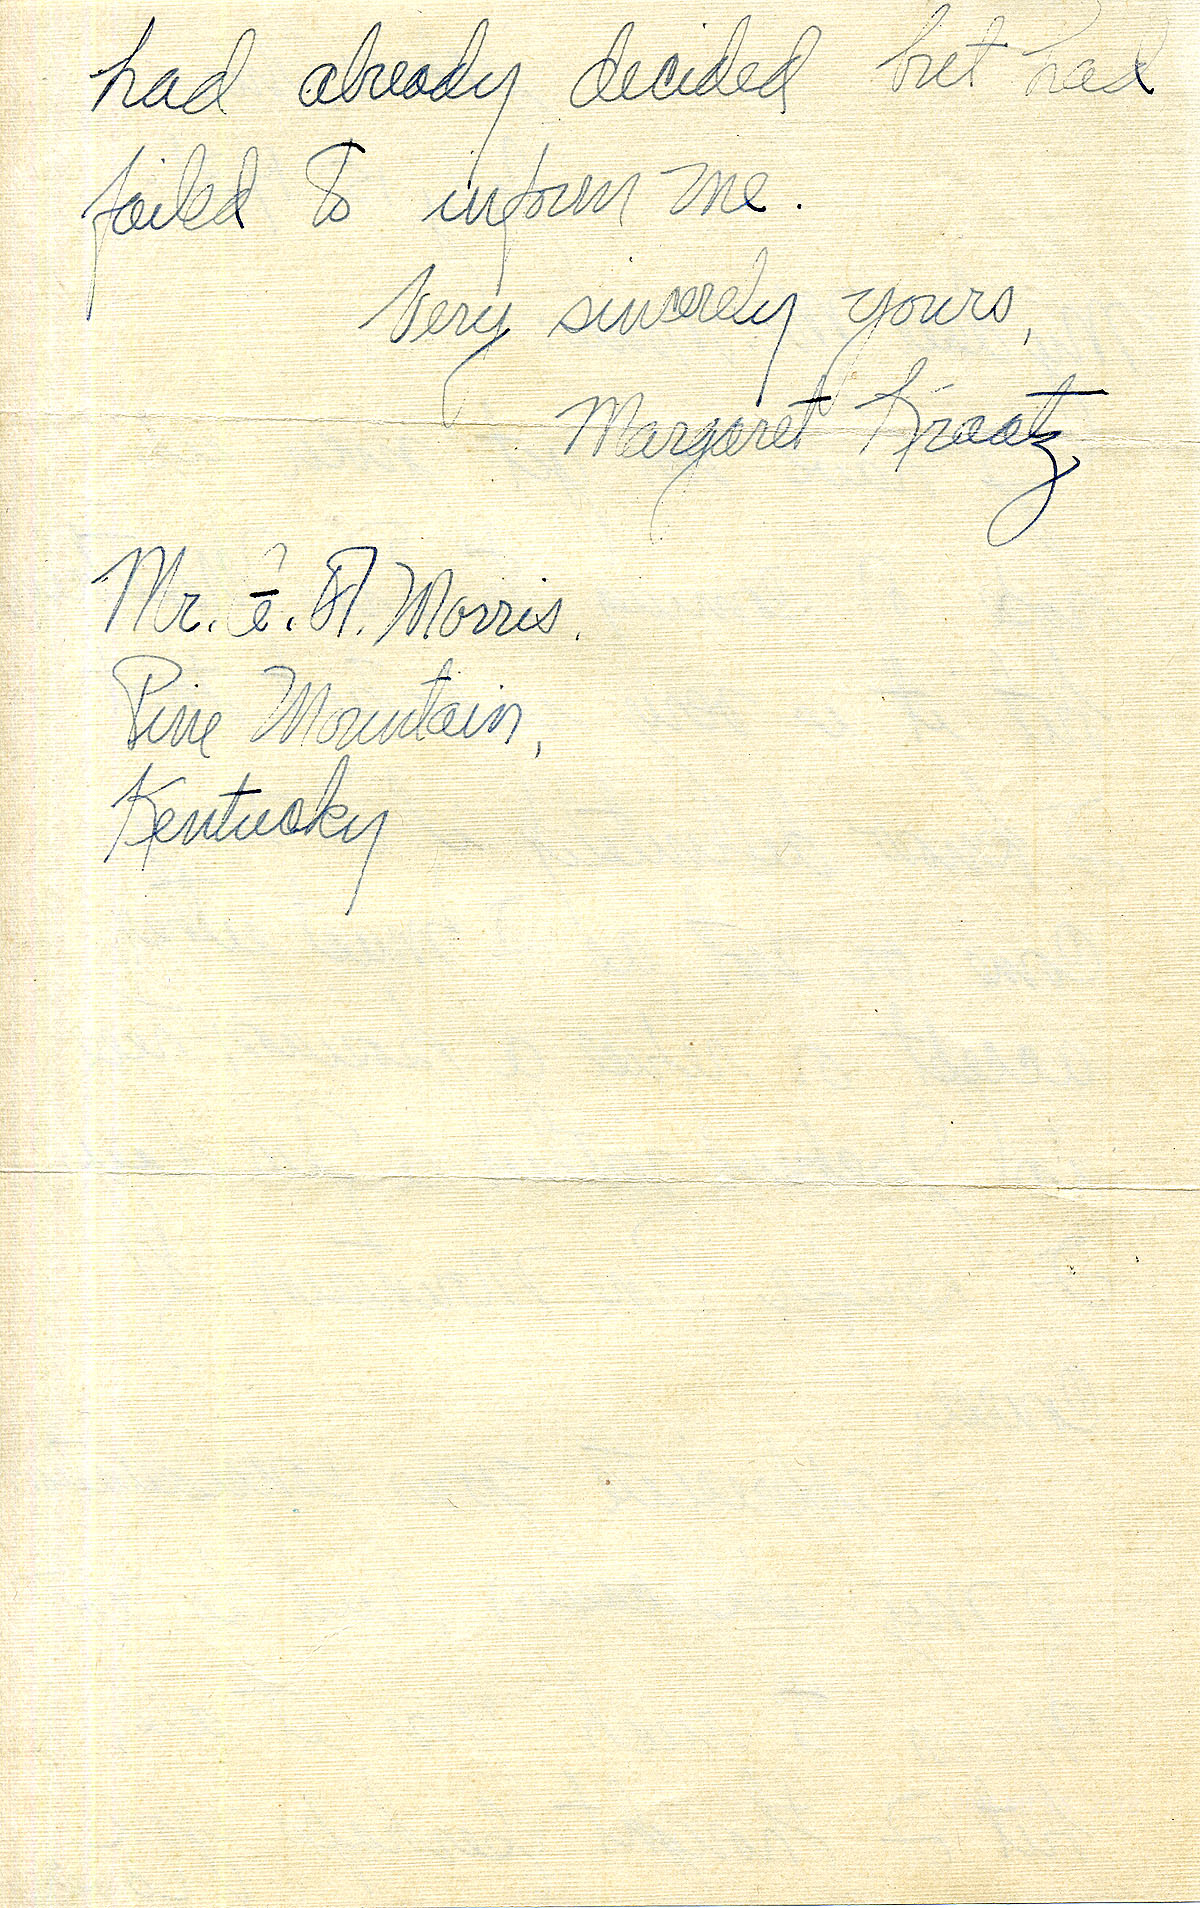 had already decided but had
failed to inform me.
Very sincerely yours,
Margaret Kraatz
Mr. Morris.
Pine Mountain,
Kentucky